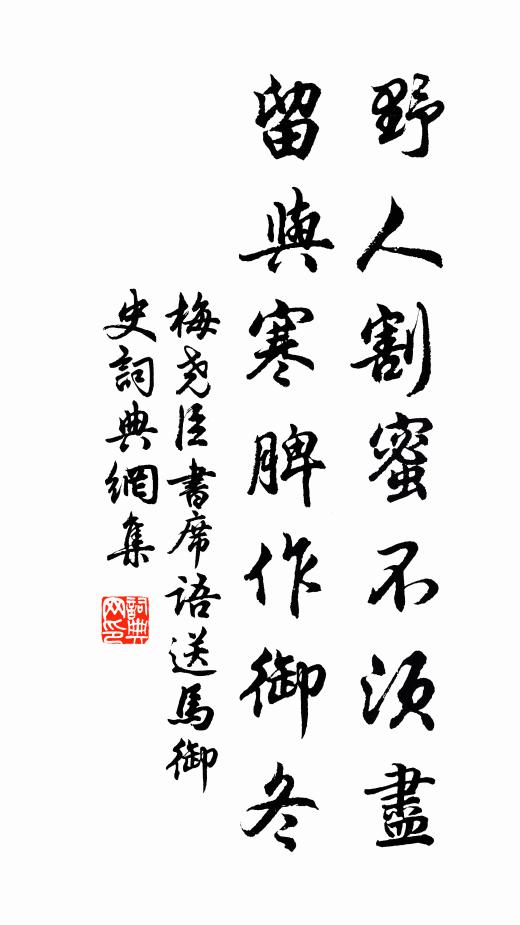 野人割蜜不須盡
留與寒脾作御冬
梅尧臣書席語送馬御
史詞典網集
詞典网印